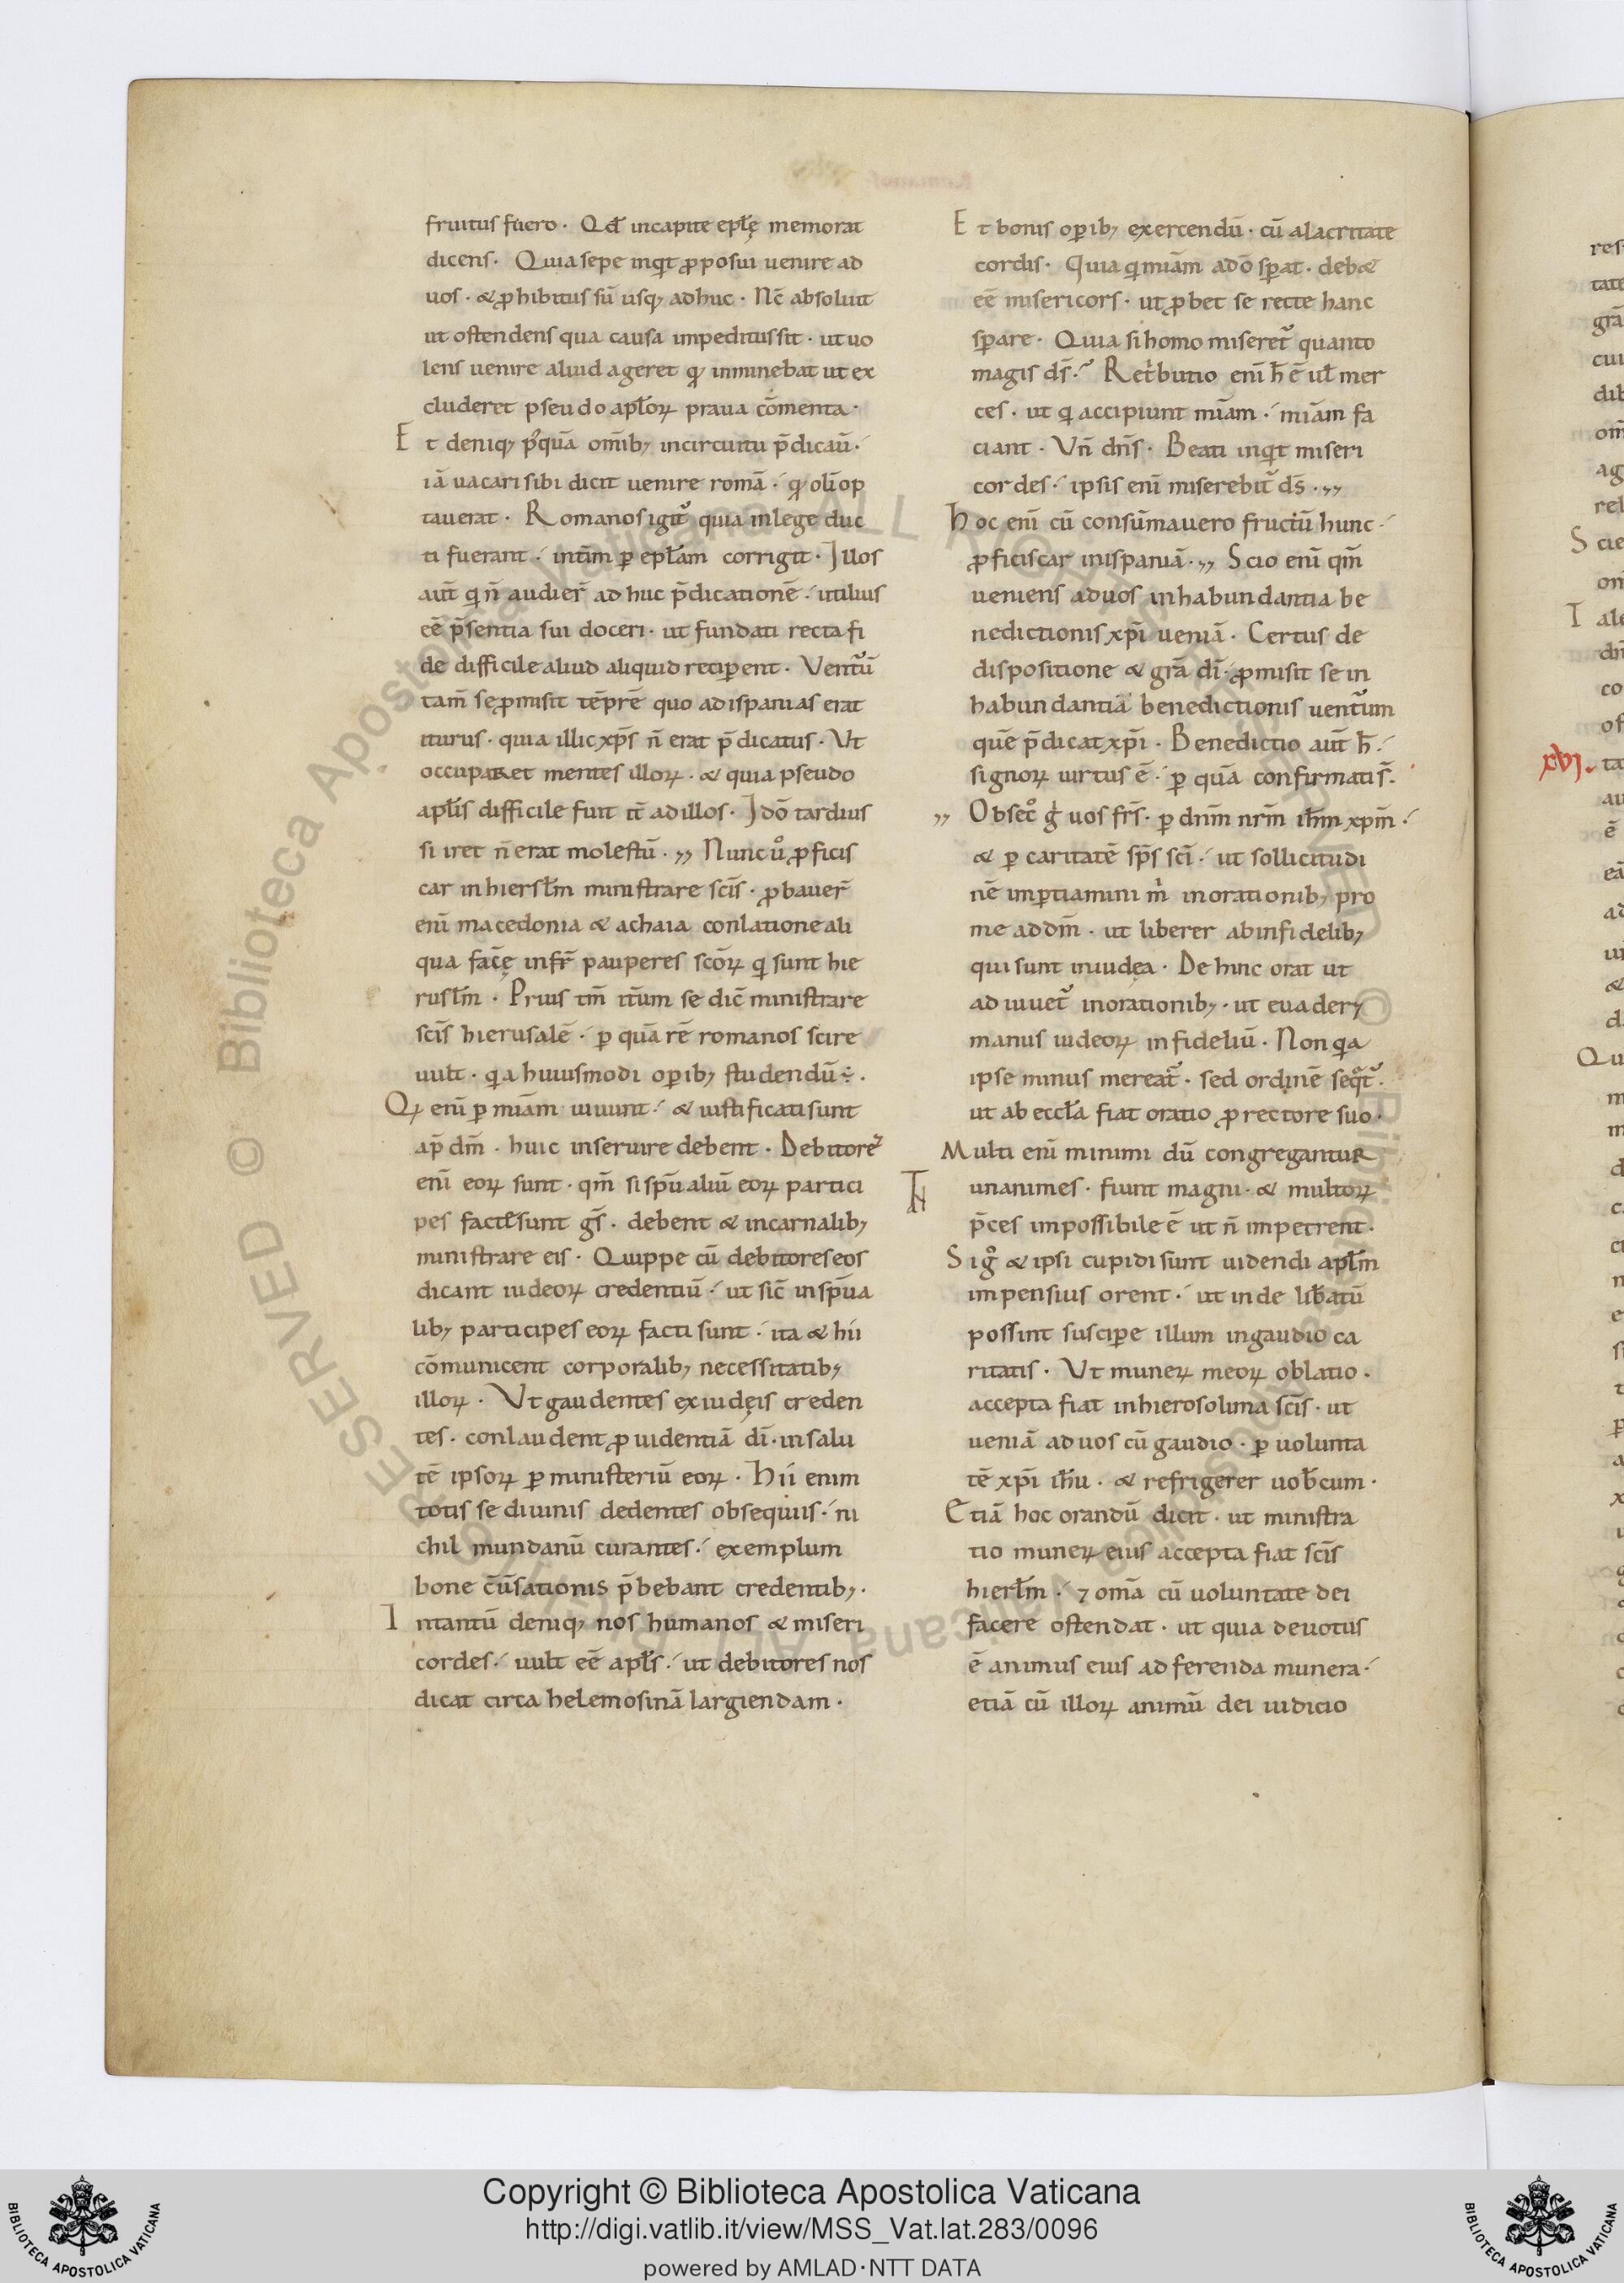 fruitus fuero · Qđ incapite epłę memorat
dicens · Quia sepe inqͥt ꝓposui uenire ad
uos · &ꝓhibitus sū usq; adhuc · Nc̄ absoluit
ut ostendens qua causa impeditus sit · ut uo
lens uenire aliud ageret qđ inminebat ut ex
cluderet pseudo aplōꝝ praua cōmenta ·
Et deniq; pͦquā om̄ib; incircuitu p̄dicaū ·
iā uacari sibi dicit uenire romā · qđ olī op
tauerat · Romanos igit᷑ quia inlege duc
ti fuerant · intī̄m ꝑ epłam corrigit · Illos
aut̄ q n̄ audier̄ ad huc p̄dicationē · utilius
eē p̄sentia sui doceri · ut fundati recta fi
de difficile aliud aliquid reciꝑent · Ventu᷑ū
tam̄ se ꝓmisit tēp̄rē quo ad ispanias erat
iturus · quia illic xp̄s n̄ erat p̄dicatus · Vt
occuparet mentes illoꝝ · & quia pseudo
aplīs difficile fuit it̄ ad illos · Idō tardius
si iret n̄ erat molestū · ,, Nunc uͦ ꝓficis
car in hiersłm ministrare scīs · ꝓbauer̄
enī macedonia & achaia conlatione ali
qua facę̄ infr̄ pauperes scōꝝ q sunt hie
rusłm · Prius tm̄ it̄um se dic̄ ministrare
scīs hierusalē · ꝑ quā rē romanos scire
uult · qa huiusmodi oꝑib; studendū ÷ ·
Qꝫ enī ꝑ miām uiuunt · & iustificati sunt
ap̄ dm̄ · huic inseruire debent · Debitores
enī eoꝝ sunt · qm̄ si sp̄ualiū eoꝝ partici
pes facti sunt gs̄ · debent & incarnalib;
ministrare eis · Quippe cū debitores eos
dicant iudeoꝝ credentiū · ut sic̄ insp̄ua
lib; participes eoꝝ facti sunt · ita & hii
cōmunicent corporalib; necessitatib;
illoꝝ · Vt gaudentes ex iudęis creden
tes · conlaudent ꝓuidentiā dī · in salu
tē ipsoꝝ ꝑ ministeriū eoꝝ · Hii enim
totis se diuinis dedentes obsequiis · ni
chil mundanū curantes · exemplum
bone c̄ūsationis p̄bebant credentib; ·
Intantū deniq; nos humanos & miseri
cordes · uult eē apls̄ · ut debitores nos
dicat circa helemosinā largiendam ·
Et bonis oꝑib; exercendū · cū alacritate
cordis · Quia q miām adō sꝑat · deb&
eē misericors · ut ꝓbet se recte hanc
sꝑare · Quia si homo miseret᷑ quanto
magis ds̄ · Retͥbutio enī h̄ ē uł mer
ces · ut q accipiunt miām · miām fa
ciant · Vn̄ dn̄s · Beati inqͥt miseri
cordes · ipsis enī miserebit᷑ ds̄ · ,,
Hoc enī cū consūmauero fructū hunc ·
ꝓficiscar inispaniā · ,, Scio enī qm̄
ueniens ad uos inhabundantia be
nedictionis xp̄i ueniā · Certus de
dispositione & grā dī · ꝓmisit se in
habundantiā benedictionis uentu᷑um
quē p̄dicat xp̄i · Benedictio aut̄ h̄ ·
signoꝝ uirtus ē · ꝑ quā confirmatis̄ ·
,, Obsecͦ gͥ uos frs̄ · ꝑ dnm̄ nrm̄ ihm̄ xpm̄ ·
& ꝑ caritatē sp̄s scī · ut sollicitudi
nē imꝑtiamini mͥ inorationib; pro
me ad dm̄ · ut liberer ab infidelib;
qui sunt iniudęa · De hinc orat ut
ad iuuet᷑ inorationib; · ut euadery
manus iudeoꝝ infideliū · Non qa
ipse minus mereat᷑ · sed ordinē seqͥt᷑ ·
ut ab ecclā fiat oratio ꝓ rectore suo ·
Multi enī minimi dū congregantur
unanimes · fiunt magni · & multoꝝ
p̄ces impossibile ē ut n̄ impetrent ·
Sigͦ & ipsi cupidi sunt uidendi aplm̄
impensius orent · ut inde libatū̄
possint susciꝑe illum ingaudio ca
ritatis · Vt muneꝝ meoꝝ oblatio ·
accepta fiat inhierosolima scīs · ut
ueniā ad uos cū gaudio · ꝑ uolunta
tē xp̄i ihū · & refrigerer uob̄cum ·
Etiā hoc orandū dicit · ut ministra
tio muneꝝ eius accepta fiat scīs
hierłm · ⁊ omā cū uoluntate dei
facere ostendat · ut quia deuotus
ē animus eius ad ferenda munera ·
etiā cū illoꝝ animū dei iudicio
xvi.
Copyright © Biblioteca Apostolica Vaticana
http://digi.vatlib.it/view/MSS_Vat.lat.283/0096
powered by AMLAD·NTT DATA
BIBLIOTECA APOSTOLICA VATICANA
BIBLIOTECA APOSTOLICA VATICANA